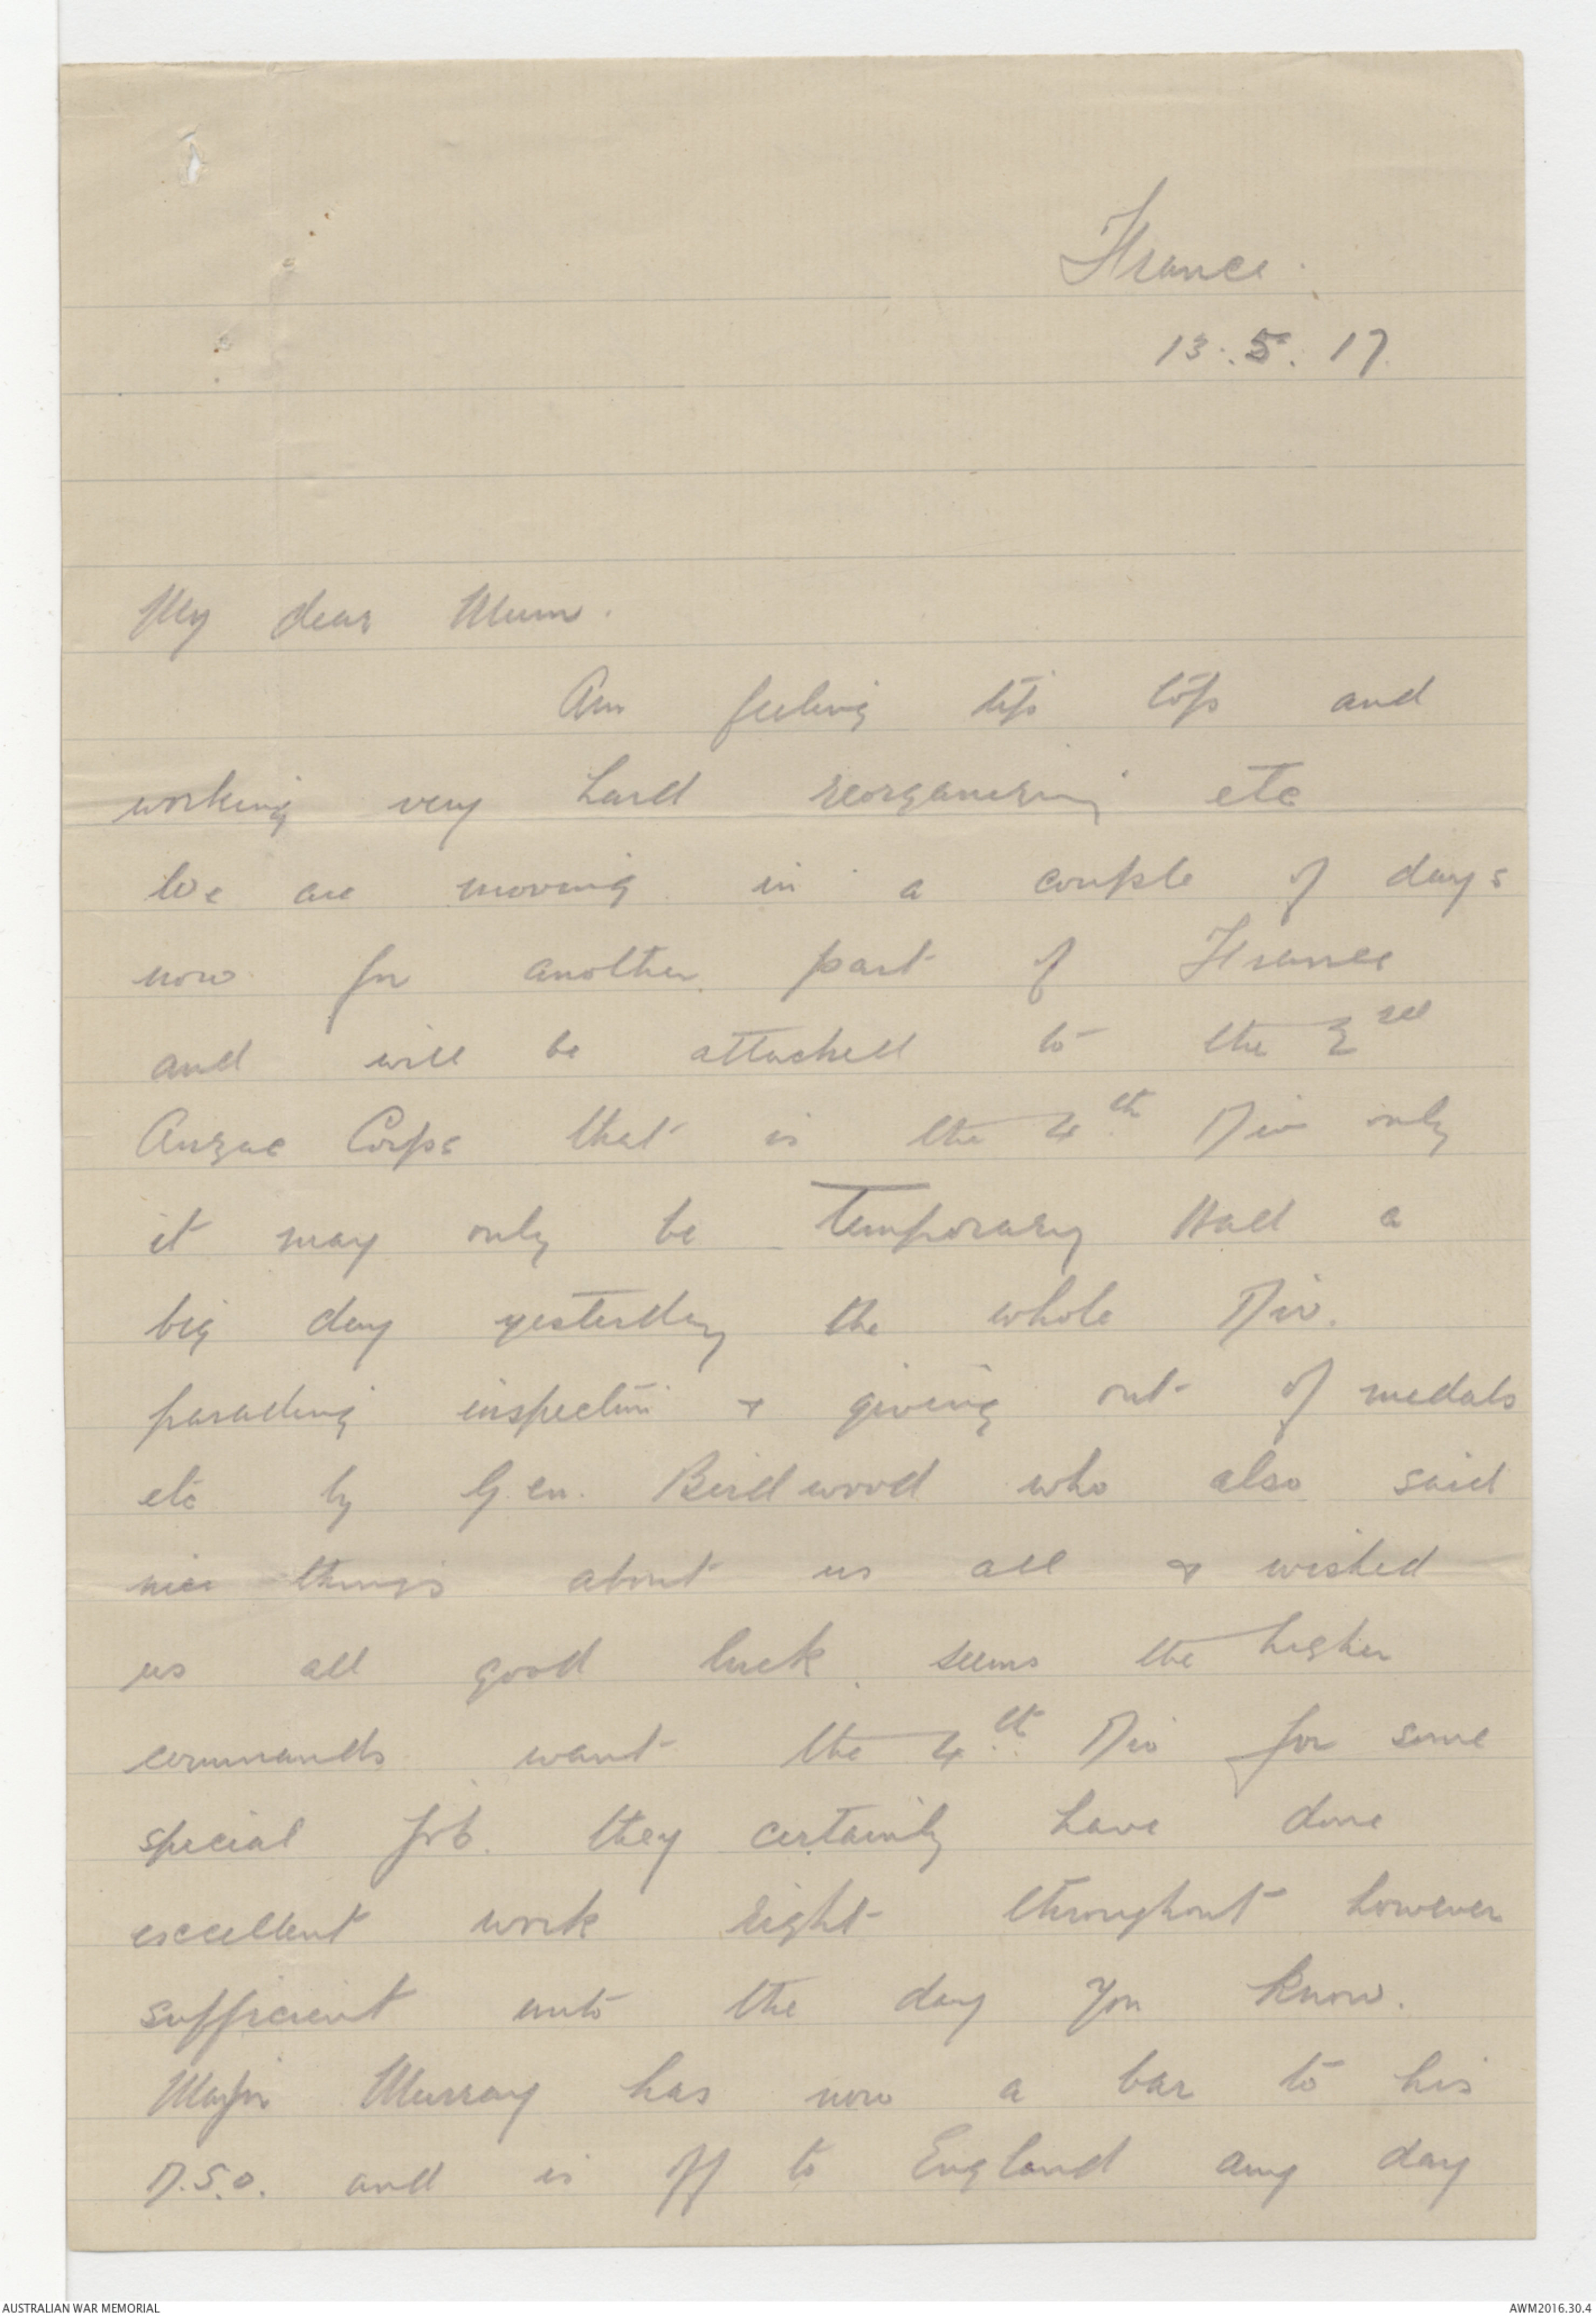 France.
13.5.17.
My dear Mum.
Am feeling tip top and
working very hard reorganising etc
We are moving in a couple of days
now for another part of France
and will be attached to the 2nd
Anzac Corps that is the 4th Div only
it may only be temporary Had a
big day yesterday the whole Div.
parading inspection & giving out of medals
etc by Gen. Birdwood who also said
nice things about us all & wished
us all good luck. seems the higher
commands want the 4th Div for some
special job. they certainly have done
excellent work right throughout however
sufficient unto the day you know.
Major Murray has now a bar to his
D.S.O. and is off to England any day
AUSTRALIAN WAR MEMORIAL
AWM2016.30.4